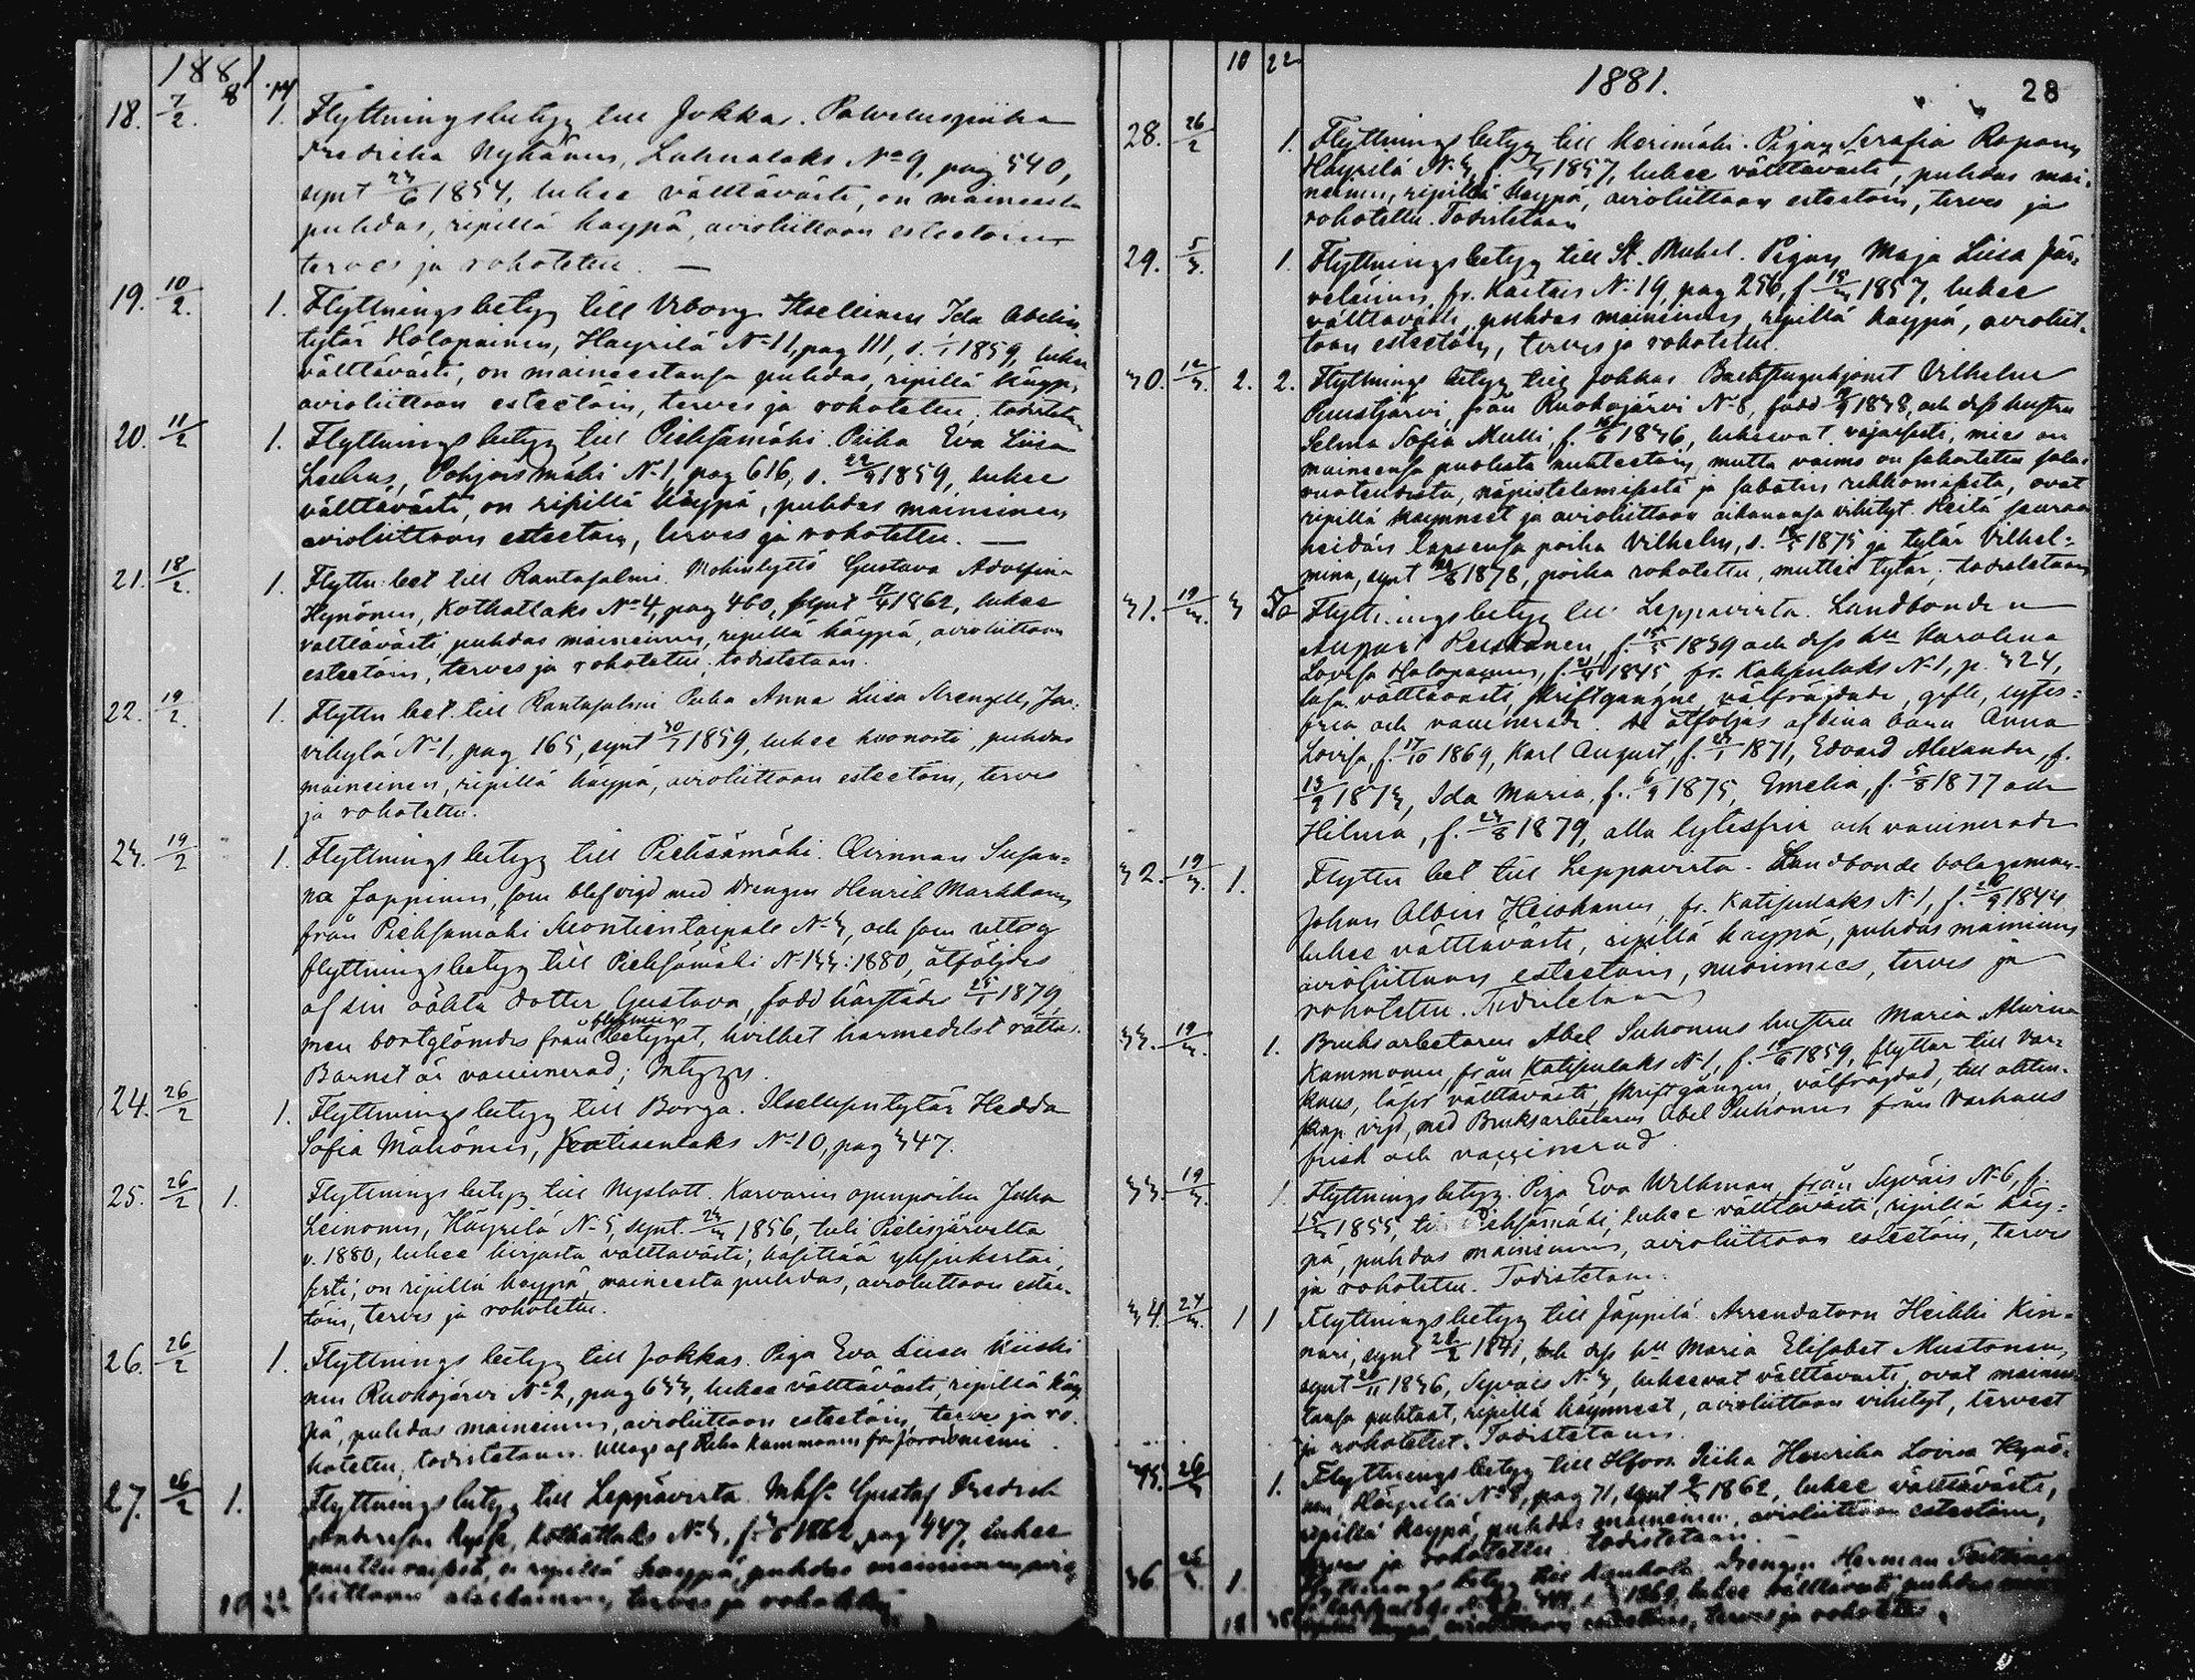 1881
18. 7/2. 1. Flyttningsbetyg till Jokkas. Palveluspiika
Fredrika Nykänen, Lahnalaks No 9, pag 540,
synt 23/6 1854, lukee välttävästi, on maineesta
puhdas, ripillä käypä, avioliittoon esteetöin
terves ja rokotettu. —
19. 10/2. 1. Flyttningsbetyg till Viborg Itsellinen Ida Abelin
tytär Holopainen, Häyrilä No 11, pag 111, s. 1/1 1859, lukee
välttävästi, on maineestansa puhdas, ripillä käyp,
avioliittoon esteetöin, terves ja rokotettu, todistetaan
20. 11/2 1. Flyttningsbetyg till Pieksämäki. Piika Eva Liisa
Laukus, Pohjoismäki No 1, pag 616, s. 22/9 1859, lukee
välttävästi, on ripillä käypä, puhdas maineinen
avioliittoon esteetöin, terves ja rokotettu. —
21. 18/2. 1. Flyttn: bet till Rantasalmi. Gustava Adolfina
Hynönen, Kothatlaks No 4, pag 460, synt 17/4 1862, lukee
välttävästi, puhdas maineinen, ripillä käypä, avioliittoon
esteetöin, terves ja rokotettu, todistetaan.
22. 19/2. 1. Flyttn bet. till Rantasalmi Piika Anna Liisa Strengell, Jär-
vikylä No 1, pag 165, synt 30/7 1859, lukee huonosti, puhdas
maineinen, ripillä käypä, avioliittoon esteetöin, terves
ja rokotettu.
23. 19/2 1. Flyttningsbetyg till Pieksämäki. Qvinnan Susan-
na Jappinen, som blef vigd med Drengen Henrik Markkanen
från Pieksämäki Montientaipale No 3, och som uttog
flyttningsbetyg till Pieksämäki No 133: 1880, åtföljdes
af sin oäkta dotter Gustava, född härstädes 25/1 1879,
men bortglömdes från flyttnings betyget, hvilket härmedelst rättas.
Barnet är vaccinerad; Intygas.
24. 26/2 1. Flyttningsbetyg till Borgå. Itsellisentytär Hedda
Sofia Mähönen, Kaatisenlaks No 10, pag 347.
25. 26/2 1. Flyttningsbetyg till Nyslott. Karvarin opinpoika Juha
Leinonen, Häyrilä No 5, synt. 23/3 1856, tuli Pielisjärveltä
v. 1880, lukee kirjasta välttävästi; käsittää yksinkertai-
sesti; on ripillä käypä, maineesta puhdas, avioliittoon estee-
töin, terves ja rokotettu.
26. 26/2 1. Flyttningsbetyg till Jokkas. Piga Eva Liisa Kiiski
nen Ruokojärvi No 2, pag 633, lukee välttävästi, ripillä käy
pä, puhdas maineinen, avioliittoon esteetöin, terves ja ro-
kotettu, todistetaan. Uttogs af Pekka Kammonen fr. Joroisniemi
27. 26/2 1. Flyttningsbetyg till Leppävirta. Gustaf Fredrik
Kothatlaks No 3, 1862, pag 447, lukee
ei ripillä käypä, puhdas maineinen, avio
liittoon alaikäinen, terves ja rokotettu
10 22
10 22
1881.
28
28. 26/2 1. Flyttningsbetyg till Kerimäki. Pigan Serafia Roponen
Häyrilä No 3, f. 1857, lukee välttävästi, puhdas mai-
neinen, ripillä käypä, avioliittoon esteetöin, terves ja
rokotettu. Todistetaan
29. 5/3. 1. Flyttningsbetyg till St. Mickel. Pigan Maja Liisa Jär-
veläinen, fr. Kaitais No 19, pag 256, f. 15/3 1857, lukee
välttävästi, puhdas maineinen, ripillä käypä, avioliit-
toon esteetöin, terves ja rokotettu.
30. 12/3. 2. 2. Flyttningsbetyg till Jokkas Backstuguhjonet Vilhelm
Puustjärvi från Ruokojärvi No 8, född 1838, och dess hustru
Selma Sofia Mulli, f. 10/6 1836, lukewat vajavasti, mies on
maineensa puolesta nuhteetoin, mutta vaimo on sakotettu sala-
vuoteudesta, näpistelemisestä ja sabatin rikkomisesta, ovat
ripillä käyneet ja avioliittoon aikanansa vihityt. Heitä seuraa
heidän lapsensa poika Vilhelm, s. 1875 ja tytär Vilhel-
mina, synt 1878, poika rokotettu, muttei tytär, todistetaan
31. 19/3. 3 5 Flyttningsbetyg till Leppävirta. Landbonden
August Heiskanen, f. 15/5 1839 och dess hu Karolina
Lovisa Holopainen, f. 21/4 1845, fr. Katisenlaks No 1, p. 324,
läsa välttävästi, skriftgångne, välfräjdade, gifte, lytes-
fria och vaccinerade. De åtföljas af sina barn Anna
Lovisa, f. 17/10 1869, Karl August, f. 23/1 1871, Edvard Alexander, f.
13/9 1873, Ida Maria, f. 6/9 1875, Emelia, f. 5/8 1877 och
Hilma, f. 23/8 1879, alla lytesfria och vaccinerade
32. 19/3. 1. Flyttn bet till Leppävirta. Landbonde bolagsman
Johan Albin Heiskanen, fr. Katisenlaks No 1, f. 26/9 1844
lukee välttävästi, ripillä käypä, puhdas maineinen
avioliittoon esteetöin, nuorimies, terves ja
rokotettu. Todistetaan
33. 19/3. 1. Bruksarbetaren Abel Suhonens hustru Maria Alvina
Kammonen, från Katisenlaks No 1, f. 19/6 1859, flyttar till Var-
kaus, läser välttävästi, skriftgången, välfräjdad, till äkten-
skap vigd, med Bruksarbetaren Abel Suhonen från Varkaus
frisk och vaccinerad.
33. 19/3. 1. Flyttningsbetyg. Piga Eva Wilkman, från Syväis No 6, f.
15/3 1855, till Pieksämäki, lukee välttävästi, ripillä käy-
pä, puhdas maineinen, avioliittoon esteetöin, terves
ja rokotettu. Todistetaan.
34. 24/3. 1 1 Flyttningsbetyg till Jäppilä. Arrendatorn Heikki Kin-
nari, synt 28/2 1841, och dess hu Maria Elisabet Mustonen,
synt 20/11 1836, Syväis No 3, lukeevat välttävästi, ovat mainees
tansa puhtaat, ripillä käynneet, avioliittoon vihityt, terveet
ja rokotetut. Todistetaan.
35. 26/3 1. Flyttningsbetyg till H:fors Piika Henrika Lovisa Hynö-
nen, Häyrilä No 8, pag 71, synt 1862, lukee välttävästi,
ripillä käypä, puhdas maineinen, avioliittoon esteetöin,
terves ja rokotettu. todistetaan. —
36. 26/3. 1 Flyttningsbetyg till Drengen Herman
1860, lukee välttävästi, puhdas
avioliittoon esteetöin, terves ja rokotettu.